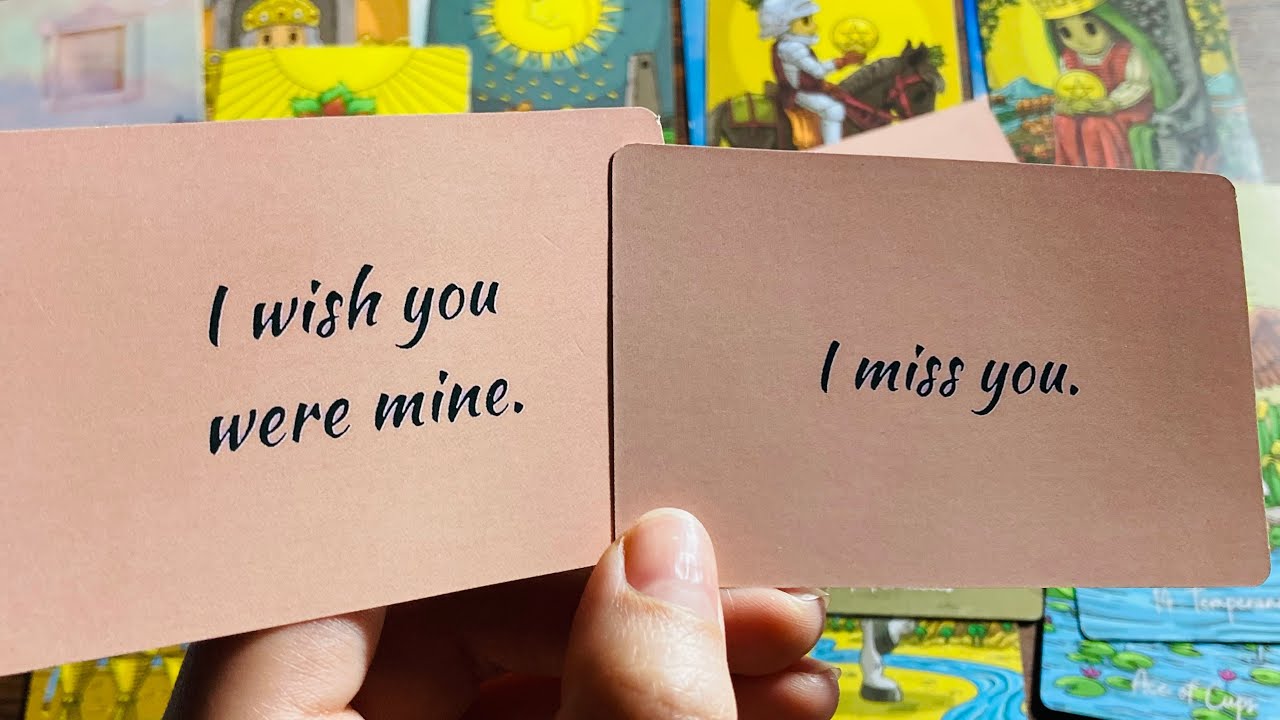 I wish you
were mine.
I miss you.
14 Temperan
Ace of Cups